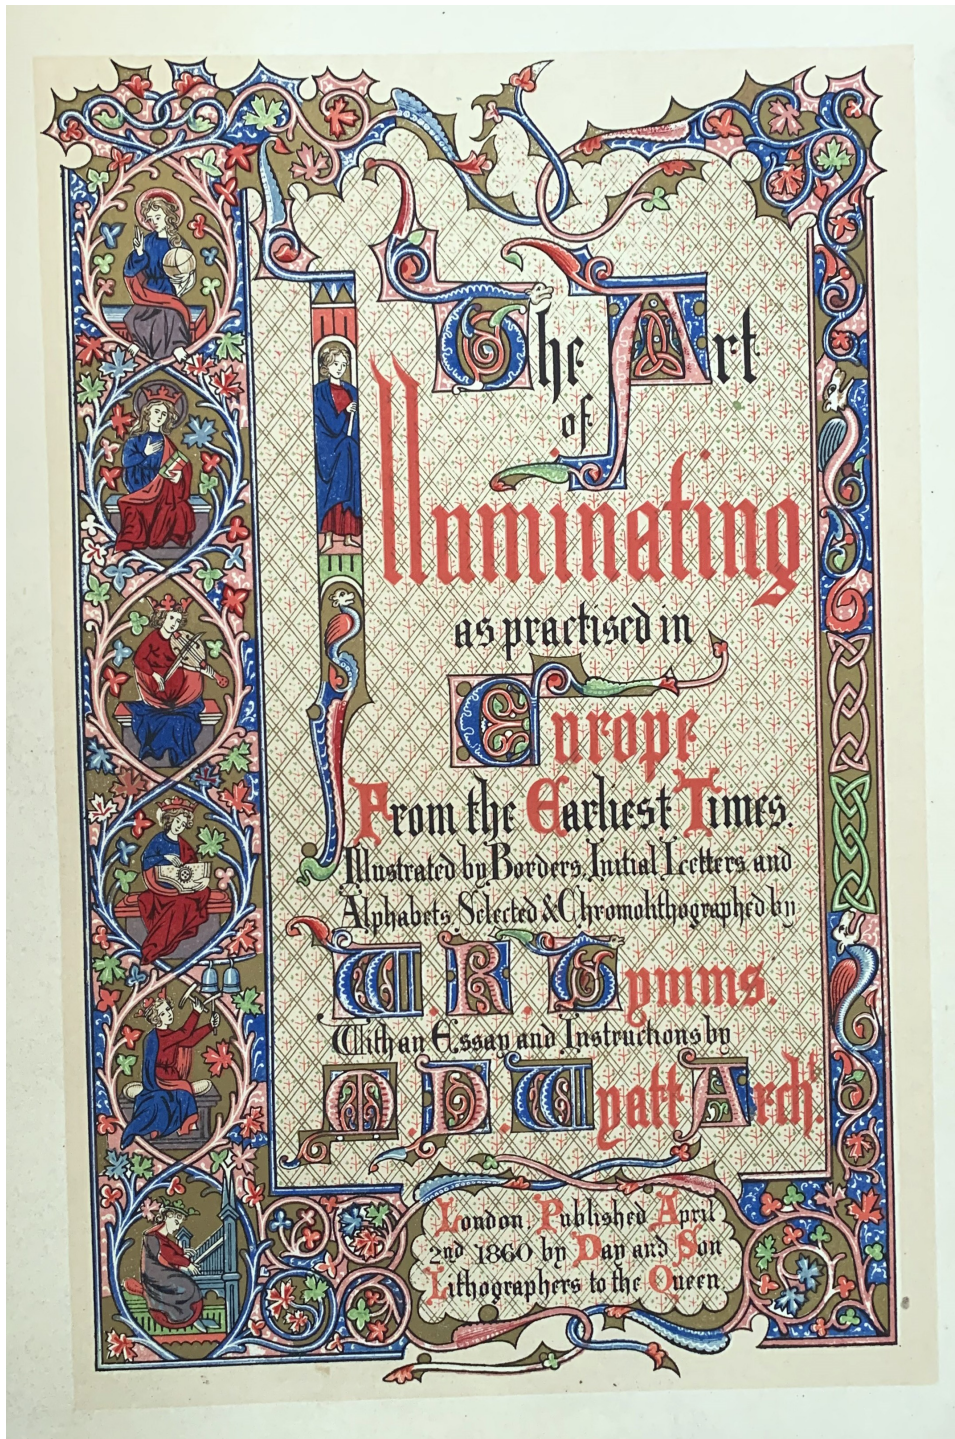 The Art
of
Illuminating
as practised in
Europe
From the Earliest Times.
Illustrated by Borders, Initial Letters and
Alphabets, Selected & Chromolithographed by
W.R.Tymms.
With an Essay and Instructions by
M.D.Wyatt Archt.
London, Published April
2nd 1860 by Day and Son
Lithographers to the Queen